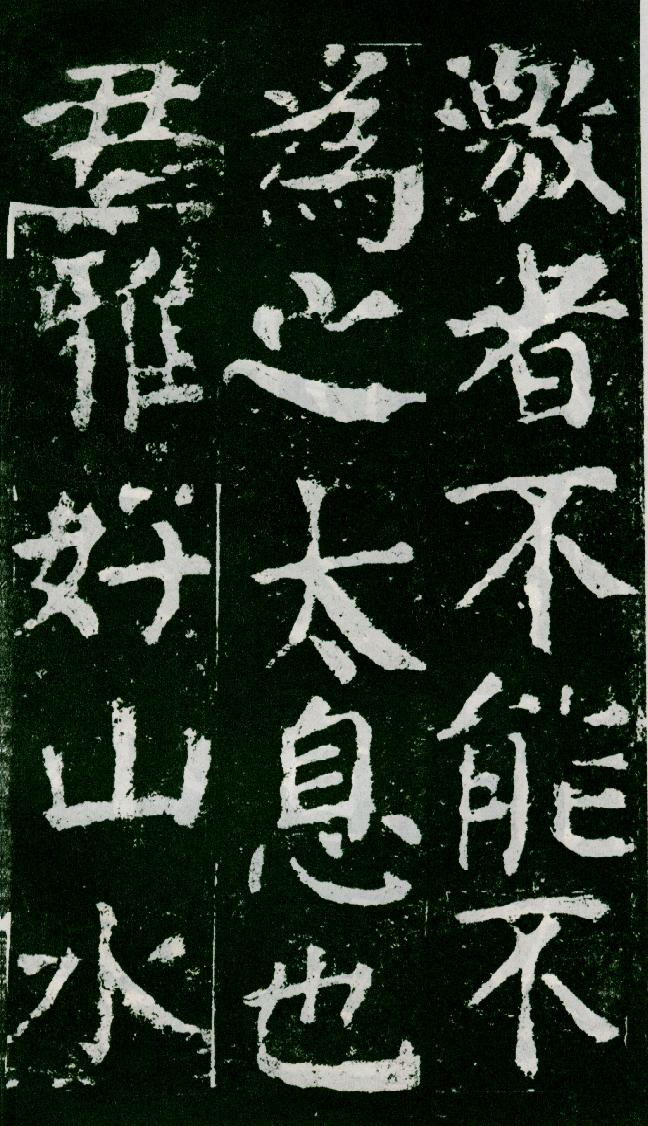 激者不能不
為之太息也
君雅好山水